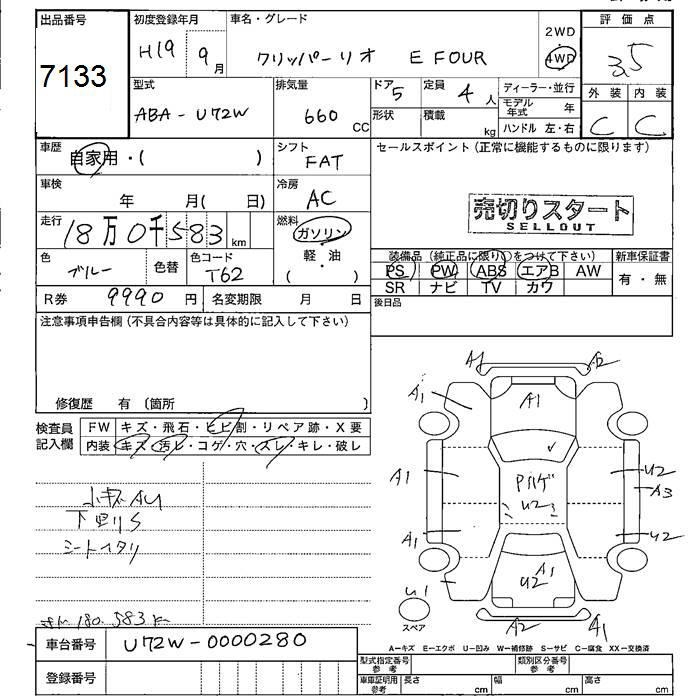 出品番号 初度登録年月 車名・グレード 評価点
7133 H19 9月 クリッパーリオ E FOUR 2WD 4WD 3.5
型式 排気量 ドア 定員 ディーラー・並行 外装 内装
ABA-U72W 660 CC 5 4人 モデル年式 年 C C
形状 積載 kg ハンドル 左・右
車歴 自家用・( ) シフト FAT セールスポイント(正常に機能するものに限ります)
車検 年 月( 日) 冷房 AC
売切りスタート
SELLOUT
走行 18万0千583km 燃料 ガソリン・軽油・( )
色 ブルー 色替 色コード T62
装備品(純正品に限り○をつけて下さい) 新車保証書
PS PW ABS エアB AW 有・無
SR ナビ TV カワ
R券 9990円 名変期限 月 日 後日品
注意事項申告欄(不具合内容等は具体的に記入して下さい)
修復歴 有 〔箇所 〕
検査員記入欄 FW キズ・飛石・ヒビ割・リペア跡・X要
内装 キズ・汚レ・コゲ・穴・スレ・キレ・破レ
小キズAU
下回りS
シートイタリ
180.583K
A1 A2
A1 A1
A1 Pハゲ U2
U2 A3
A1 U2
U1 U2 A1
スペア A2 A1
A-キズ E-エクボ U-凹み W-補修跡 S-サビ C-腐食 XX-交換済
車台番号 U72W-0000280
登録番号
型式指定番号 参考 類別区分番号 参考
車庫証明用 参考 長さ cm 幅 cm 高さ cm